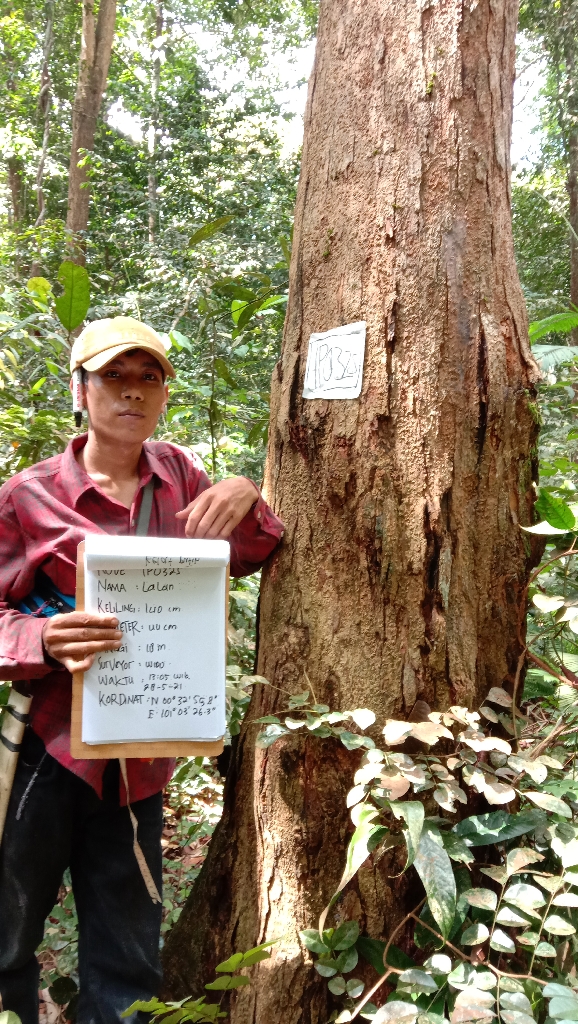 IP0323
KODE IP0323
NAMA : Lalan
KELLING : 140 cm
METER : 44 cm
GGI : 18 m
Surveyor : WIDO
WAKTU : 13:05 WIB
28-5-21
KORDINAT : N 00° 32' 55,8"
E: 101° 03' 26.3"